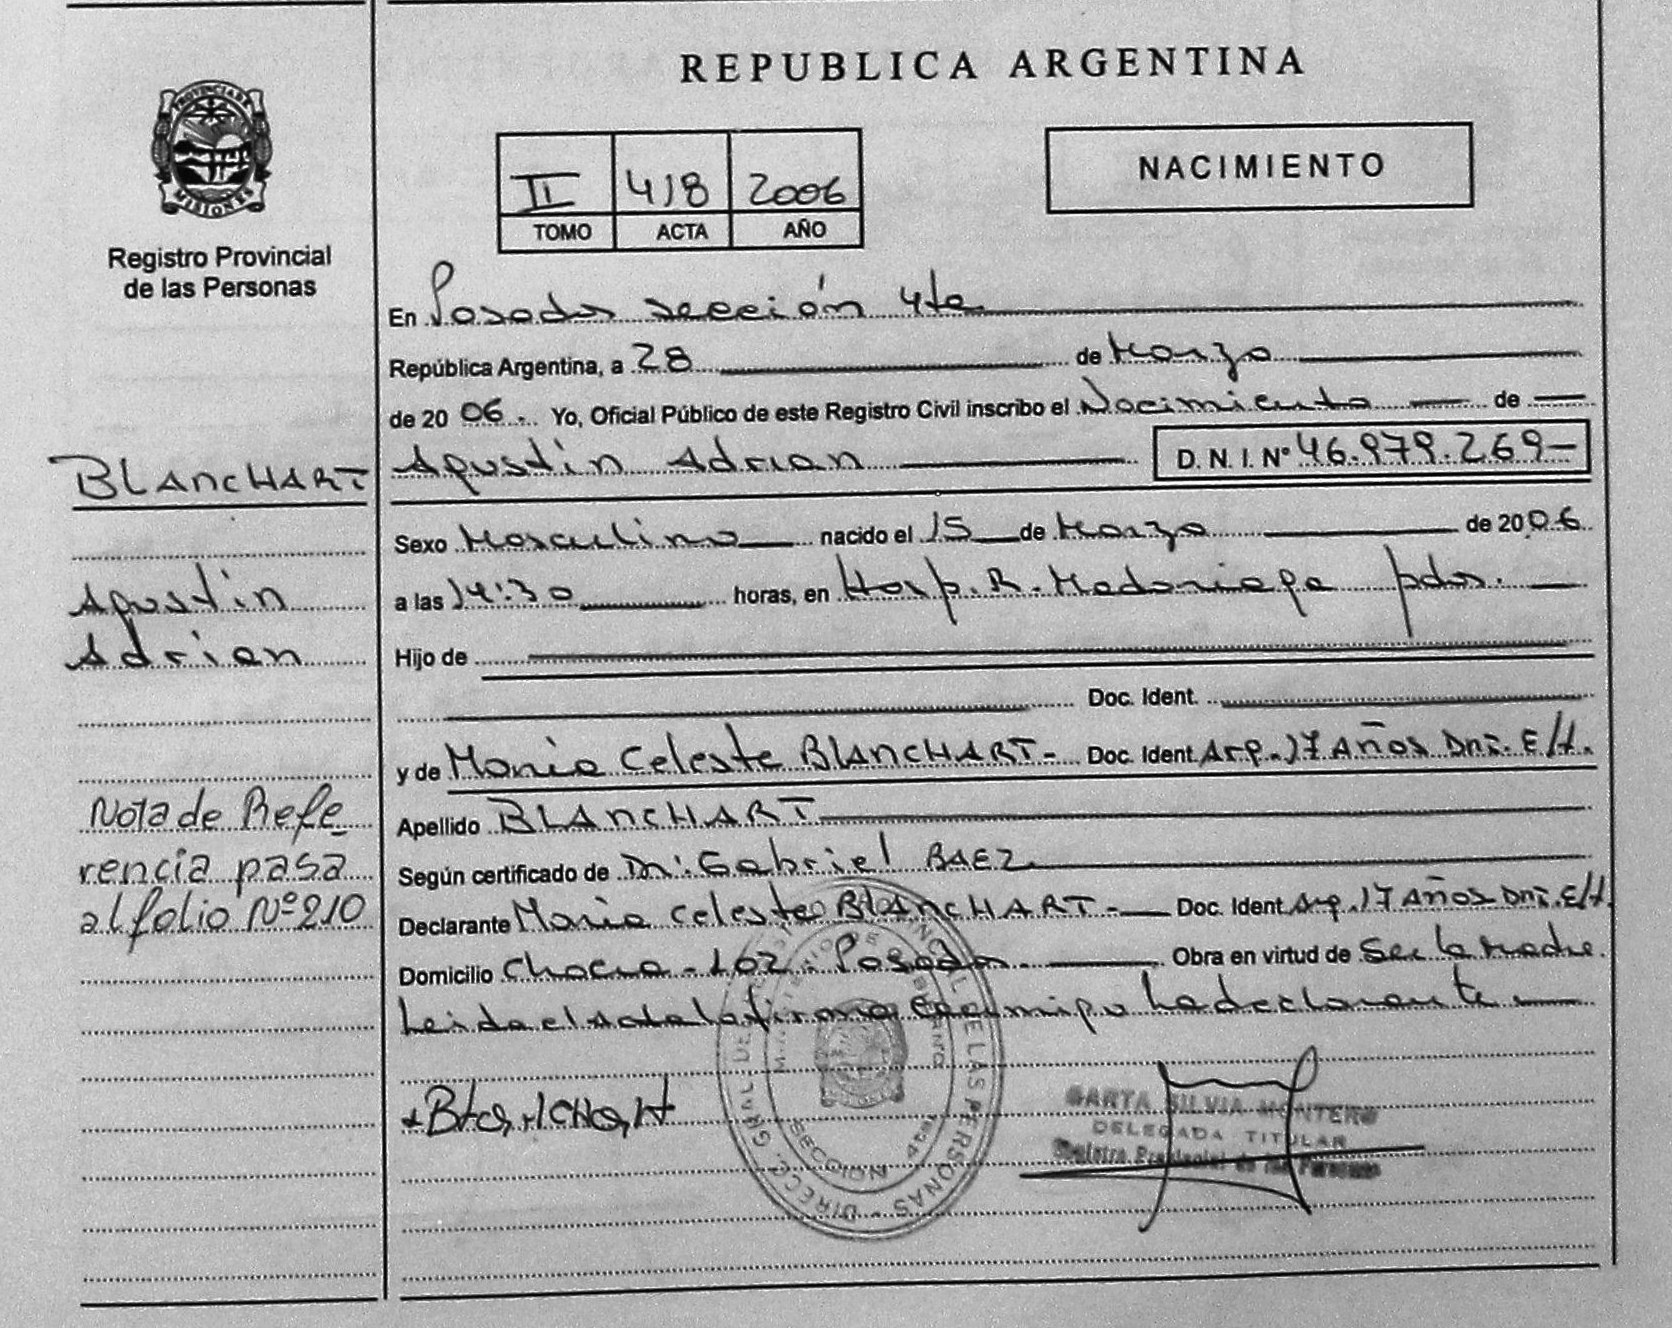 REPUBLICA ARGENTINA
PROVINCIA DE
MISIONES
Registro Provincial
de las Personas
II 418 2006
TOMO ACTA AÑO
NACIMIENTO
En Posadas sección 4ta
República Argentina, a 28 de Marzo
de 2006. Yo, Oficial Público de este Registro Civil inscribo el Nacimiento de
Agustín Adrian D. N. I. Nº 46.979.269-
Sexo Masculino nacido el 15 de Marzo de 2006
a las 14:30 horas, en Hosp. R. Madariaga pdas.
Hijo de
Doc. Ident.
y de Maria Celeste BLANCHART- Doc. Ident. Arg. 17 Años Dni. E/t.
Apellido BLANCHART
Según certificado de Dr: Gabriel BAEZ
Declarante Maria Celeste BLANCHART- Doc. Ident. Arg. 17 Años Dni. E/t.
Domicilio Chacra - 102 - Posadas. Obra en virtud de ser la madre.
Leida el Acta la firma conmigo la declarante
BLANCHART
Agustín
Adrian
Nota de Refe
rencia pasa
al folio Nº 210
DIRECC. GRAL. DEL REGISTRO PROVINCIAL DE LAS PERSONAS
MINISTERIO DE GOBIERNO
SECCION 4ta
SILVIA MONTERO
DELEGADA TITULAR
Registro Provincial de las Personas